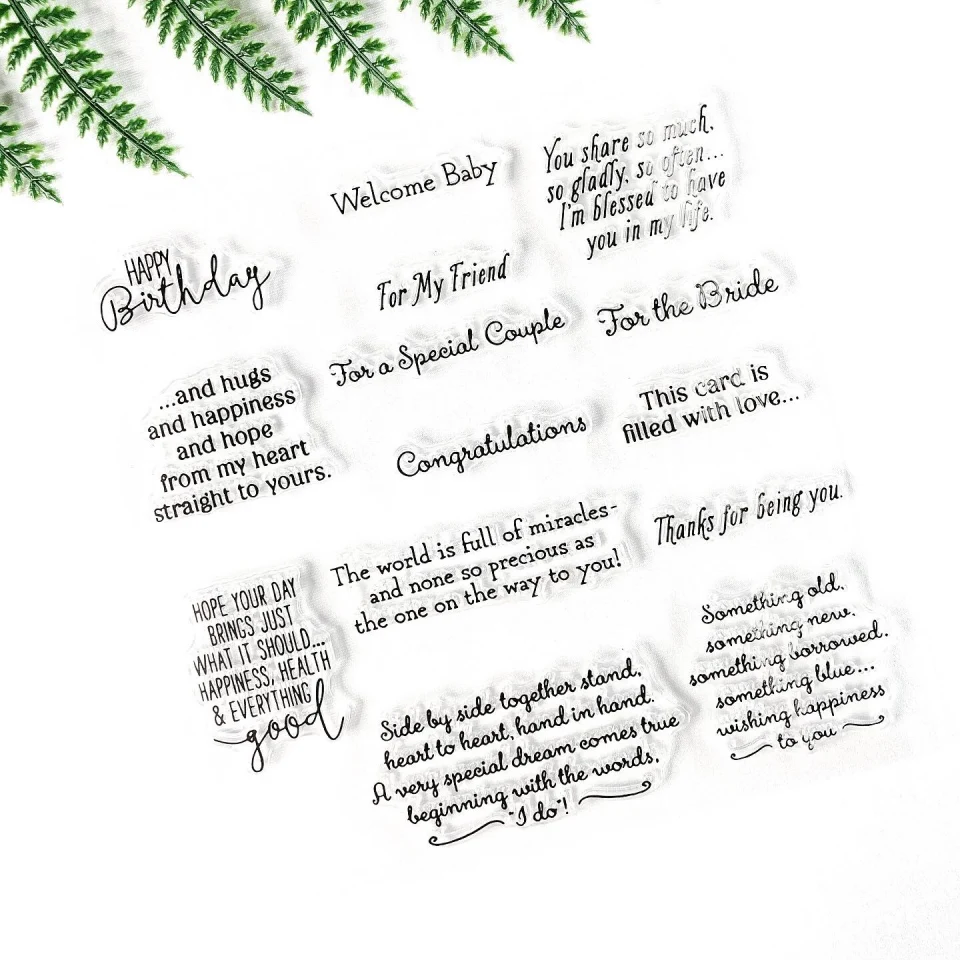 Welcome Baby
You share so much,
so gladly, so often...
I'm blessed to have
you in my life.
HAPPY
Birthday
For My Friend
For the Bride
For a Special Couple
...and hugs
and happiness
and hope
from my heart
straight to yours.
This card is
filled with love...
Congratulations
Thanks for being you.
The world is full of miracles-
and none so precious as
the one on the way to you!
HOPE YOUR DAY
BRINGS JUST
WHAT IT SHOULD...
HAPPINESS, HEALTH
& EVERYTHING
good
Something old,
something new,
something borrowed,
something blue...
wishing happiness
to you
Side by side together stand,
heart to heart, hand in hand.
A very special dream comes true
beginning with the words,
"I do"!